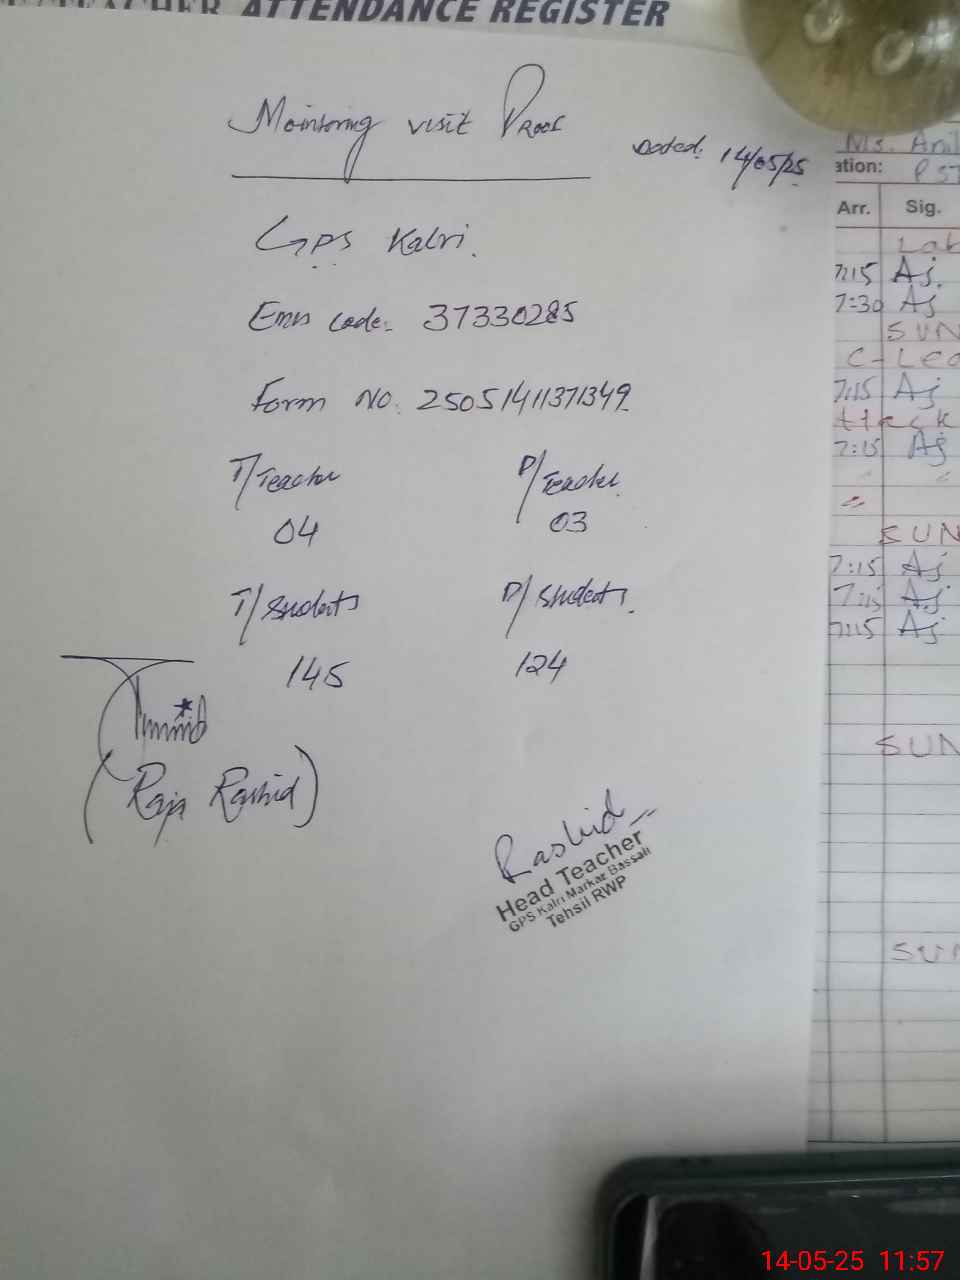 TEACHER ATTENDANCE REGISTER
Monitoring visit Proof
Dated: 14/05/25
GPS Kalri.
Emis code: 37330285
Form No. 25051411371349
T/Teacher P/Teacher
04 03
T/Students P/Students
145 124
(Raja Rashid)
Rashid
Head Teacher
GPS Kalri Markaz Bassali
Tehsil RWP
Ms.
ation: PST
Arr. Sig.
7:15 Aj.
7:30 Aj
SUN
C-Lea
7:15 Aj
7:15 Aj
SUN
7:15 Aj
7:15 Aj
7:15 Aj
SUN
SUN
14-05-25 11:57